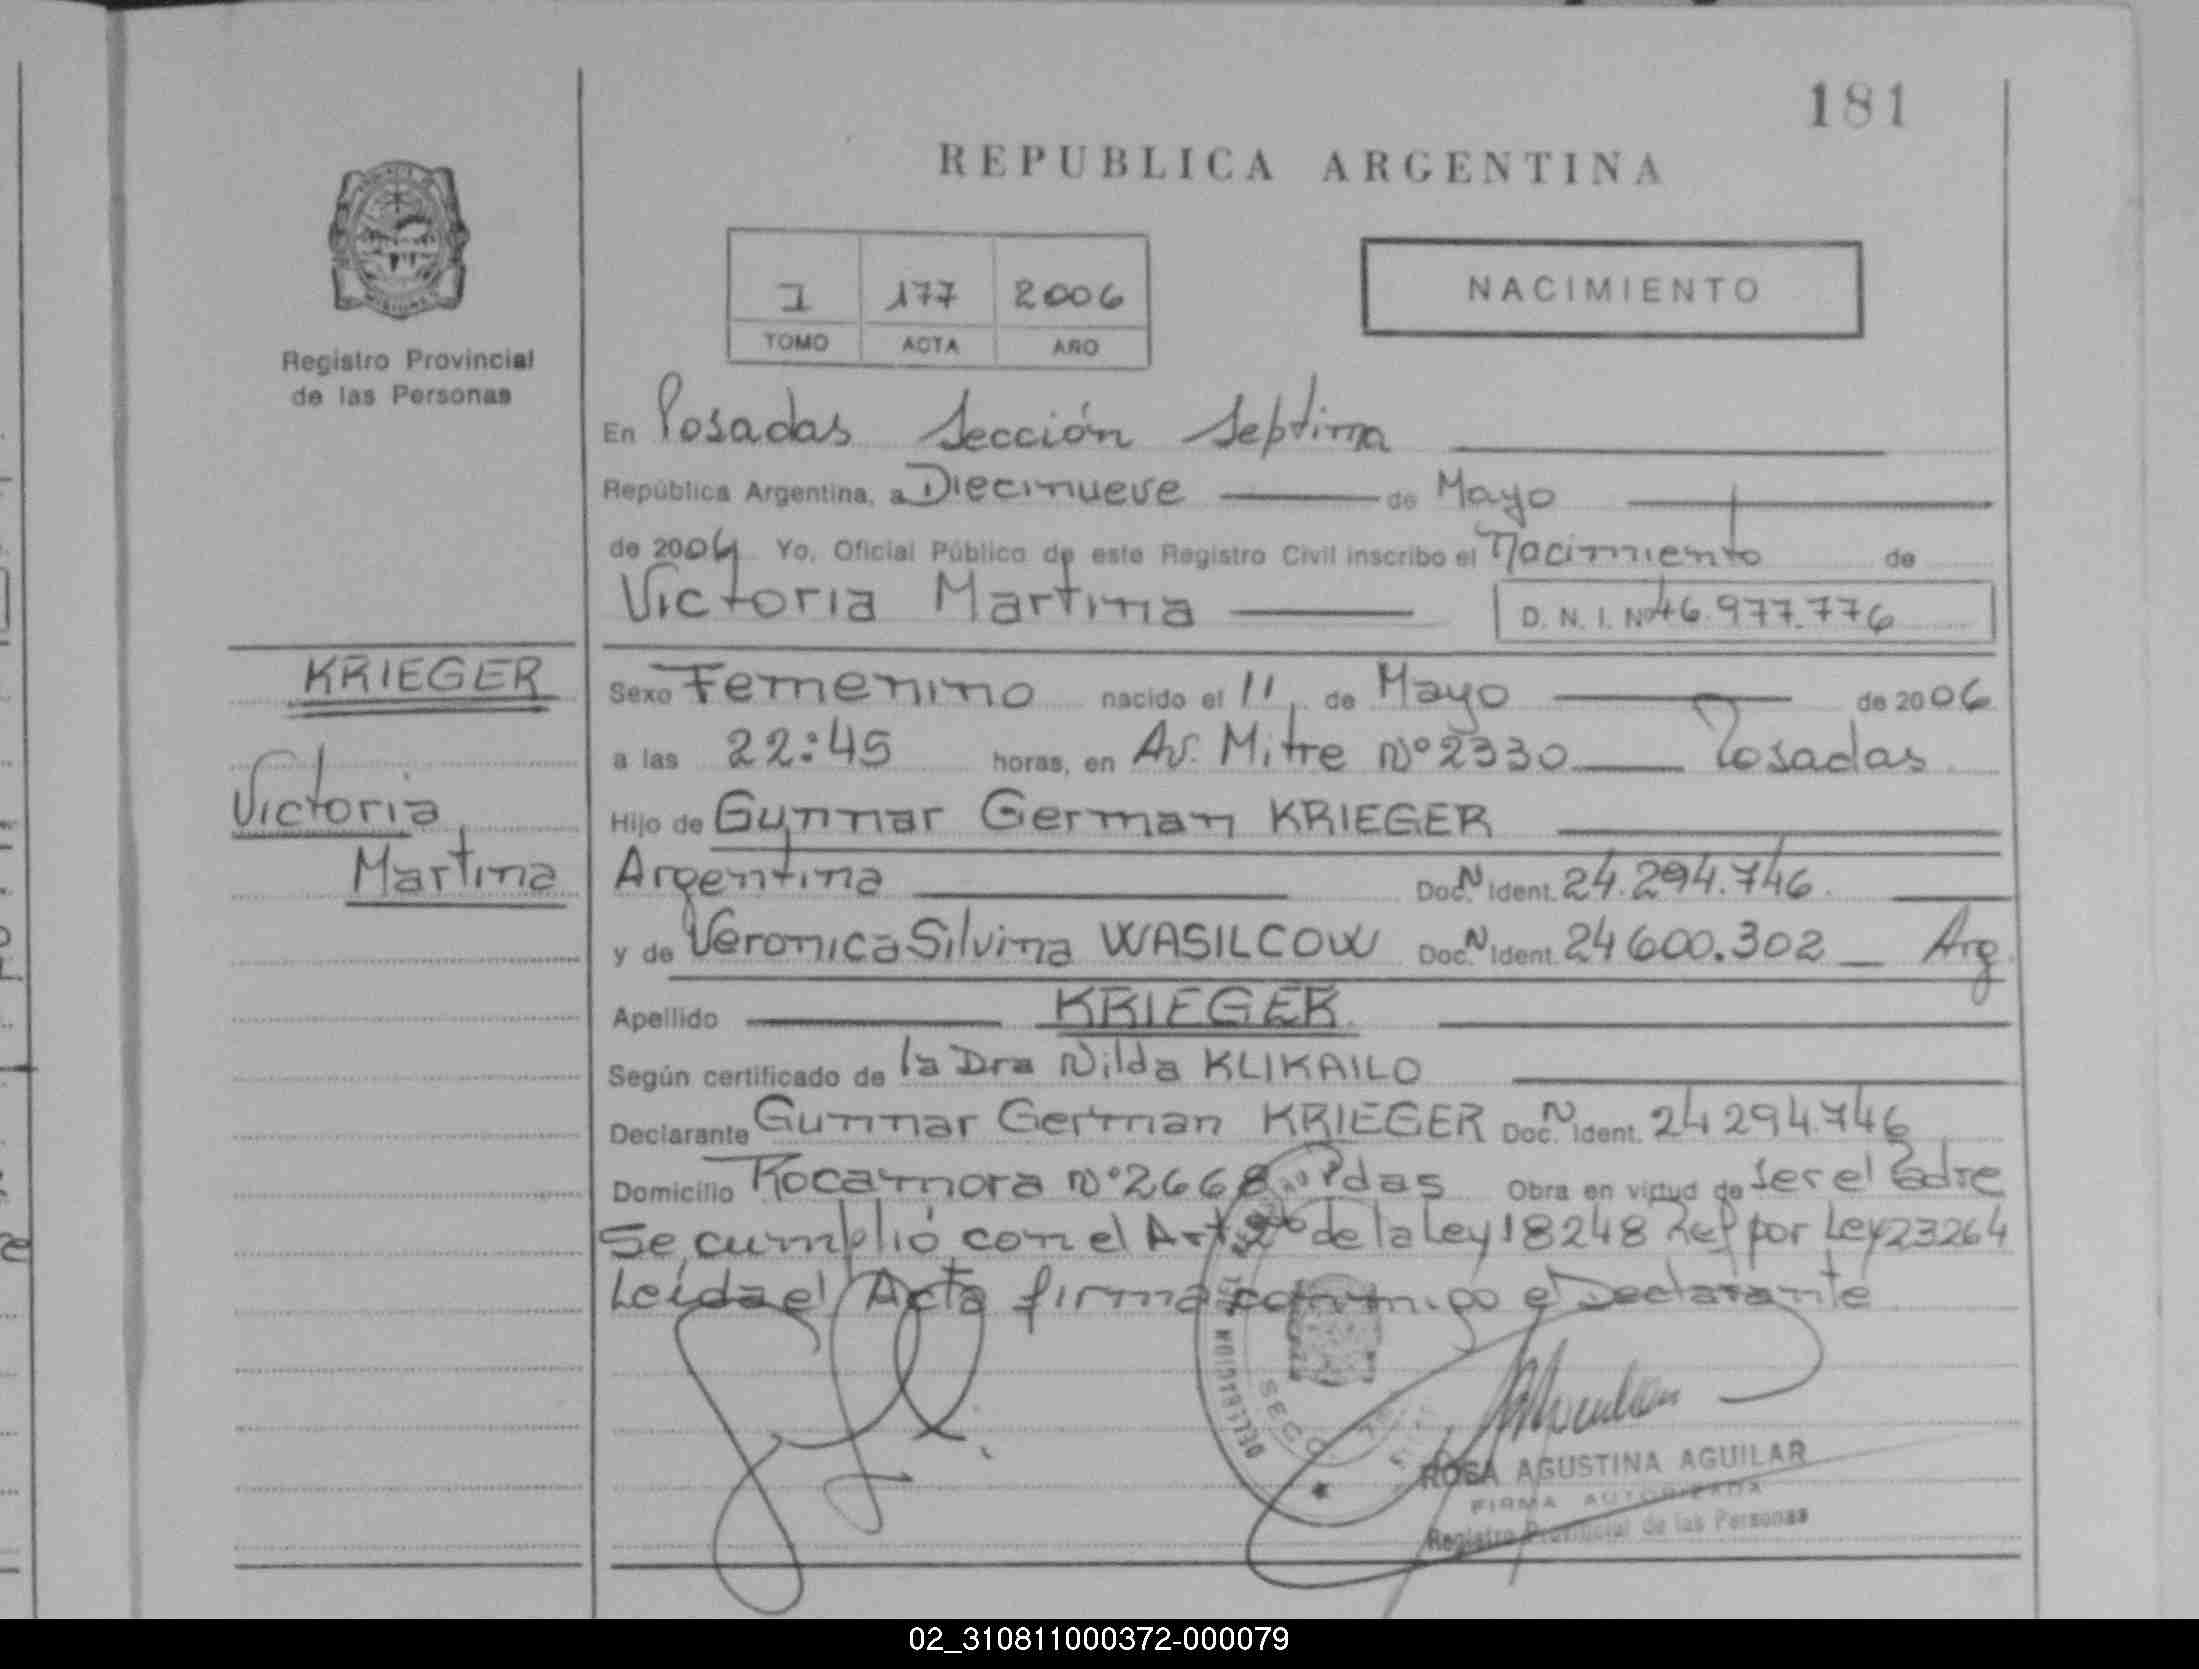 181
REPUBLICA ARGENTINA
I 177 2006
TOMO ACTA AÑO
NACIMIENTO
Registro Provincial
de las Personas
En Posadas Sección Septima
República Argentina, a Diecinueve de Mayo
de 2006 Yo, Oficial Público de este Registro Civil inscribo el Nacimiento de
Victoria Martina D. N. I. Nº 46.977.776
KRIEGER
Victoria
Martina
Sexo Femenino nacido el 11 de Mayo de 2006
a las 22:45 horas, en Av. Mitre Nº 2330 Posadas
Hijo de Gunnar German KRIEGER
Argentina Doc. N Ident. 24.294.746.
y de Veronica Silvina WASILCOW Doc. N Ident. 24600.302 Arg.
Apellido KRIEGER
Según certificado de la Dra Nilda KLIKAILO
Declarante Gunnar German KRIEGER Doc. N Ident. 24294.746
Domicilio Rocamora Nº 2668 Pdas Obra en virtud de ser el Padre
Se cumplió con el Art. de la Ley 18248 Ref por Ley 23264
Leída el Acta firma conmigo el Declarante
DELEGACION
ROSA AGUSTINA AGUILAR
FIRMA AUTORIZADA
Registro Provincial de las Personas
02_310811000372-000079